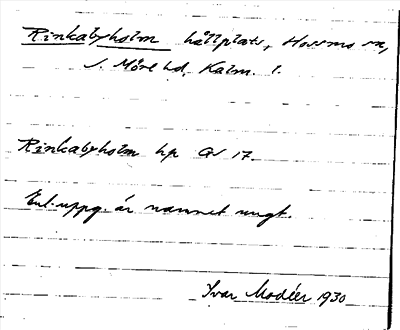 Rinkabyholm hållplats, Hossmo sn,
S. Möre hd, Kalm. l.
Rinkabyholm hp GS 17.
Enl. uppg. är namnet ungt.
Ivar Modéer 1930